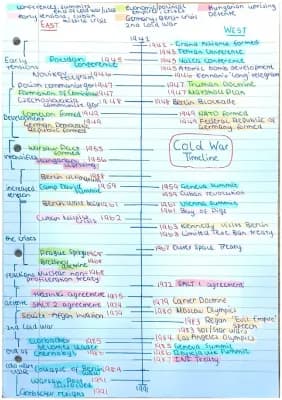 Conferences, summits
economic/political
Hungarian uprising
crisis
détente
2nd cold war
EAST
WEST
1941
1941 - Grand Alliance formed
1943 Tehran Conference
Early
tensions
Potsdam
conference
1945
1945 Yalta conference
1945 Atomic bomb development
Novikov
telegram
1946
1946 Kennan's 'long' telegram
1947
1947 Truman Doctrine
1947
1947 Marshall Plan
Czechoslovakia
1948
1948 Berlin Blockade
Development
Comecon formed
1949
1949 NATO formed
German Democratic
Republic formed
1949
1949 Federal Republic of
Germany formed
Warsaw Pact
formed
1955
Cold War
Timeline
Hungarian
uprising
1956
increased
tension
Berlin ultimatum
1958
Camp David
Summit
1959
1959 Geneva Summit
1959 Cuban revolution
Berlin Wall built
1961
1961 Vienna Summit
1961 Bay of Pigs
Cuban missile
crisis
1962
1963 Kennedy visits Berlin
1963 Limited Test Ban treaty
the crises
1967 Outer Space Treaty
Prague Spring
1968
Brezhnev
doctrine
Nuclear non-
proliferation treaty
1968
1972 SALT 1 agreement
détente
Helsinki agreement
1975
SALT 2 agreement
1979
1979 Carter Doctrine
Soviet-Afghan invasion
1979
1980 Moscow Olympics
2nd Cold War
1983 Reagan 'Evil Empire'
speech
1983 SDI/Star wars
1984 Los Angeles Olympics
Gorbachev
becomes leader
1985
1985 Geneva Summit
end of
cold war
Chernobyl
1986
1986 Reykjavik Summit
1987 INF Treaty
collapse of Berlin
Wall
1989
Warsaw Pact
dissolved
1991
Gorbachev resigns
1991
1991